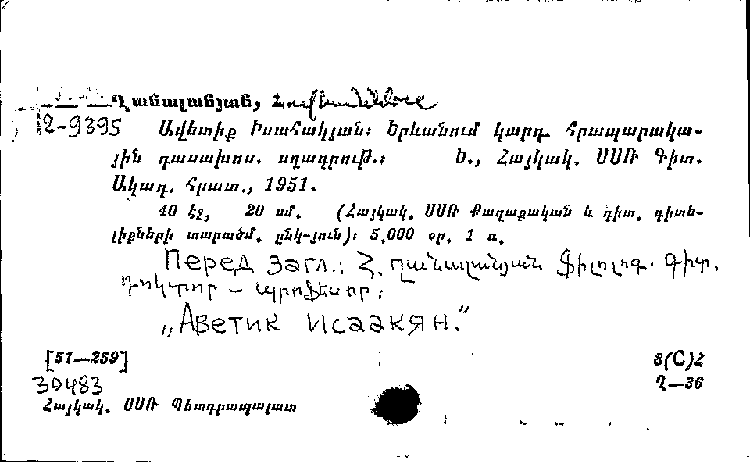 Ղանալանյան, Հովհաննես
12-9395 Ավետիք Իսահակյան։ Երևանում կարդ. Հրապարակա-
յին դասախոս. սղագրութ.։ Ե., Հայկակ. ՍՍՌ Գիտ.
Ակադ. Հրատ., 1951.
40 էջ, 20 սմ. (Հայկակ. ՍՍՌ Քաղաքական և գիտ. գիտե-
լիքների տարածմ. ընկ-յուն)։ 5,000 օր. 1 ռ.
Перед загл.: Հ. Ղանալանյան Ֆիլոլոգ. գիտ.
դոկտոր – պրոֆեսոր։
„Аветик Исаакян."
[51—259] 8(С)Հ
30483 Ղ—36
Հայկակ. ՍՍՌ Պետգրապալատ